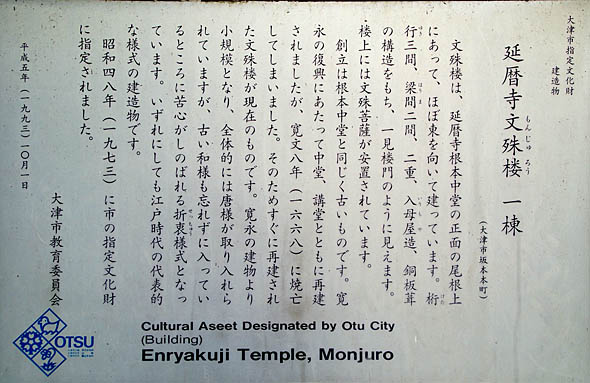 大津市指定文化財
建造物
延暦寺文殊楼 一棟
もんじゅろう
(大津市坂本本町)
文殊楼は、延暦寺根本中堂の正面の尾根上
にあって、ほぼ東を向いて建っています。桁
けた
行三間、梁間二間、二重、入母屋造、銅板葺
はりま
の構造をもち、一見楼門のように見えます。
楼上には文殊菩薩が安置されています。
創立は根本中堂と同じく古いものです。寛
永の復興にあたって中堂、講堂とともに再建
されましたが、寛文八年(一六六八)に焼亡
してしまいました。そのためすぐに再建され
た文殊楼が現在のものです。寛永の建物より
小規模となり、全体的には唐様が取り入れら
れていますが、古い和様も忘れずに入ってい
るところに苦心がしのばれる折衷様式となっ
ています。いずれにしても江戸時代の代表的
な様式の建造物です。
昭和四八年(一九七三)に市の指定文化財
に指定されました。
平成五年(一九九三)一〇月一日
大津市教育委員会
OTSU
Cultural Aseet Designated by Otu City
(Building)
Enryakuji Temple, Monjuro